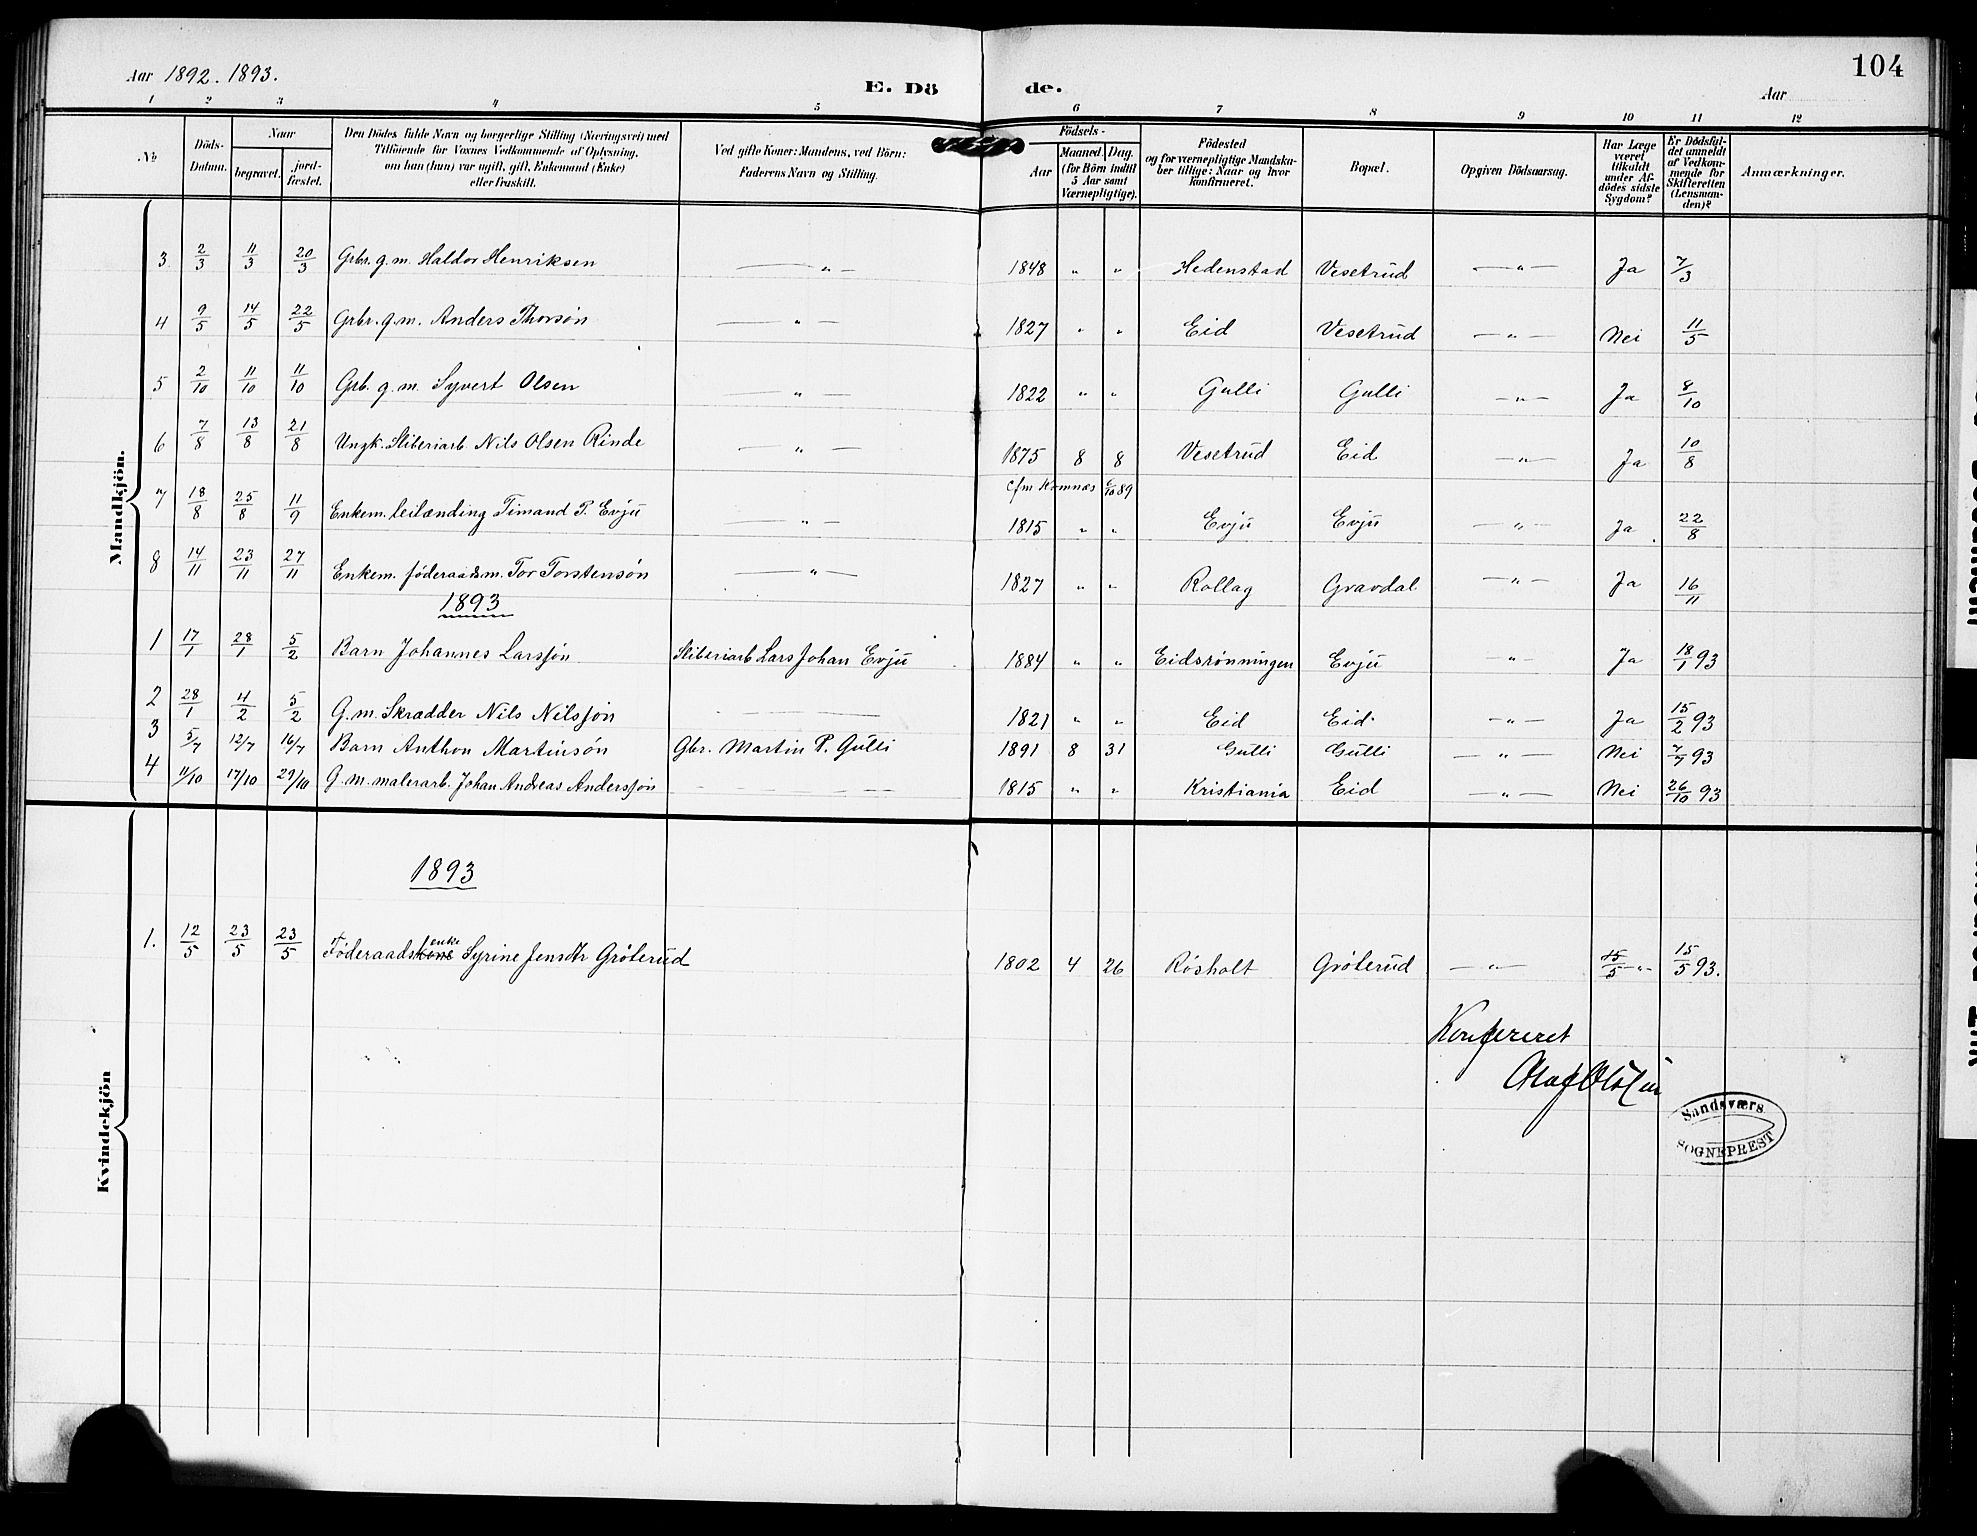 104
Aar 1892. 1893.
E. Dö de.
Aar
1 2 3 4 5 6 7 8 9 10 11 12
No
Döds-Datum.
Naar
begravet.
jord-fæstet.
Den Dödes fulde Navn og borgerlige Stilling (Næringsvei) med
Tilföiende for Voxnes Vedkommende af Oplysning,
om han (hun) var ugift, gift, Enkemand (Enke)
eller fraskilt.
Ved gifte Koner: Mandens, ved Börn:
Faderens Navn og Stilling.
Födsels-
Aar
Maaned. Dag.
(for Börn indtil
5 Aar samt
Værnepligtige).
Födested
og for værnepligtige Mandska-
ber tillige: Naar og hvor
konfirmeret.
Bopæl.
Opgiven Dödsaarsag.
Har Læge
været
tilkaldt
under Af-
dödes sidste
Sygdom?
Er Dödsfal-
det anmeldt
af Vedkom-
mende for
Skifteretten
(Lensman-
den)?
Anmærkninger.
Mandkjön.
3 2/3 11/3 20/3 Grbr. g. m. Haldor Henriksen — „ — 1848 „ „ Hedenstad Vesetrud — „ — Ja 7/3
4 9/5 14/5 22/5 Grbr. g. m. Anders Thorsön — „ — 1827 „ „ Eid Vesetrud — „ — Nei 11/5
5 2/10 11/10 11/10 Grb. g. m. Syvert Olsen — „ — 1822 „ „ Gulli Gulli — „ — Ja 8/10
6 7/8 13/8 21/8 Ungk. Sliberiarb Nils Olsen Rinde — „ — 1875 8 8 Vesetrud Eid — „ — Ja 10/8
cfm Komnæs 6/10 89
7 18/8 25/8 11/9 Enkem. leilænding Timand P. Evju — „ — 1815 „ „ Evju Evju — „ — Ja 22/8
8 14/11 23/11 27/11 Enkem. föderaadsm. Tor Torstensön — „ — 1827 „ „ Rollag Gravdal — „ — Ja 16/11
1893
1 17/1 28/1 5/2 Barn Johannes Larssön Sliberiarb Lars Johan Evju 1884 „ „ Eidsrönningen Evju — „ — Ja 18/1 93
2 28/1 4/2 5/2 G. m. Skrædder Nils Nilssön — 1821 „ „ Eid Eid — „ — Ja 15/2 93
3 5/7 12/7 16/7 Barn Anthon Martinsön Gbr. Martin P. Gulli 1891 8 31 Gulli Gulli — „ — Nei 7/7 93
4 11/10 17/10 29/10 G. m. malerarb. Johan Andreas Anderssön — 1815 „ „ Kristiania Eid — „ — Nei 26/10 93
Kvindekjön
1893
1. 12/5 23/5 23/5 Föderaadskone enke Syrine Jensdtr Gröterud 1802 4 26 Rösholt Gröterud — „ — 15/5 — „ — 15/5 93.
Konfereret
Sandsværs
SOGNEPREST